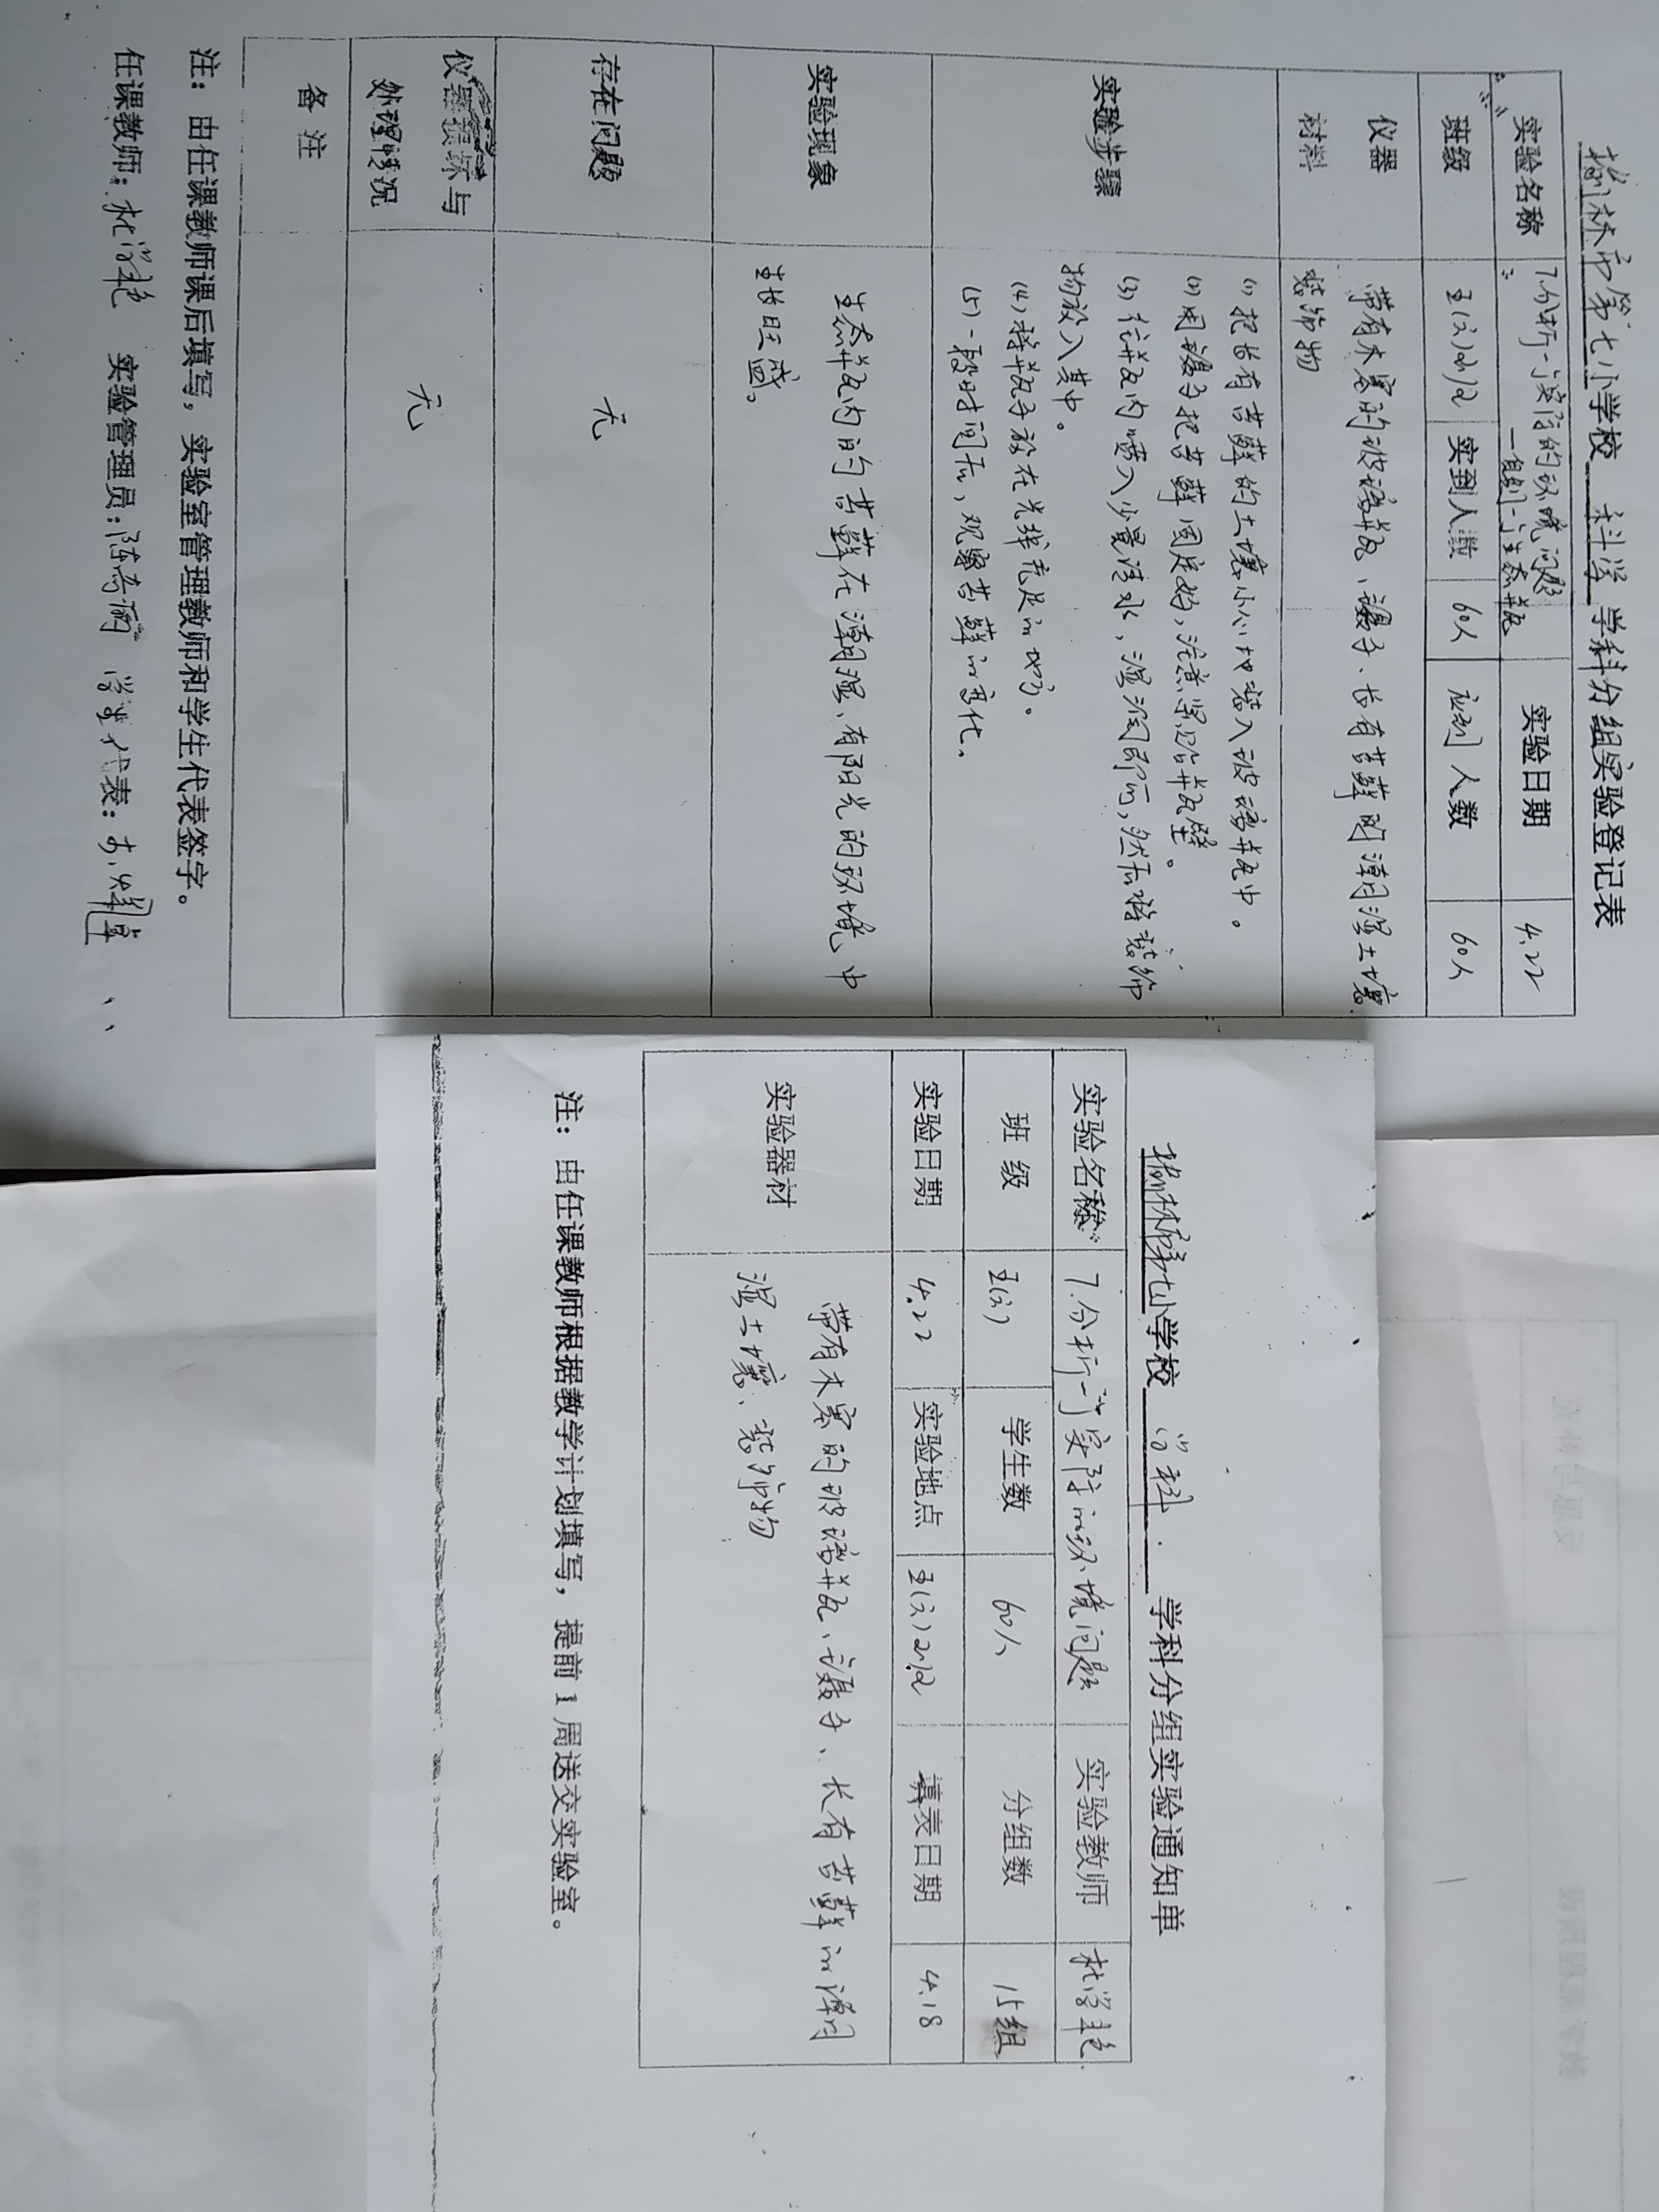 榆林市第七小学校 科学 学科分组实验登记表
实验名称 7.分析一个实际的环境问题 实验日期 4.22
一自制一个生态瓶
班级 五(六)班 实到人数 60人 应到人数 60人
仪器 带有木塞的玻璃瓶、镊子、长有苔藓的潮湿土壤
材料 装饰物
实验步骤
(1) 把长有苔藓的土壤小心地装入玻璃瓶中。
(2) 用镊子把苔藓固定好,注意紧贴瓶壁。
(3) 往瓶内喷入少量清水,湿润即可,然后将装饰
物放入其中。
(4) 将瓶子放在光线充足的地方。
(5) 一段时间后,观察苔藓的变化。
实验现象
生态瓶内的苔藓在潮湿、有阳光的环境中
生长旺盛。
存在问题 无
仪器损坏与
处理情况 无
备 注
注:由任课教师课后填写,实验室管理教师和学生代表签字。
任课教师:杜学艳 实验管理员:陈 学生代表:
榆林市第七小学校 科学 学科分组实验通知单
实验名称 7.分析一个实际的环境问题 实验教师 杜学艳
班 级 五(六) 学生数 60人 分组数 15组
实验日期 4.22 实验地点 五(六)班 填表日期 4.18
实验器材 带有木塞的玻璃瓶、镊子、长有苔藓的潮
湿土壤、装饰物
注:由任课教师根据教学计划填写,提前1周送交实验室。